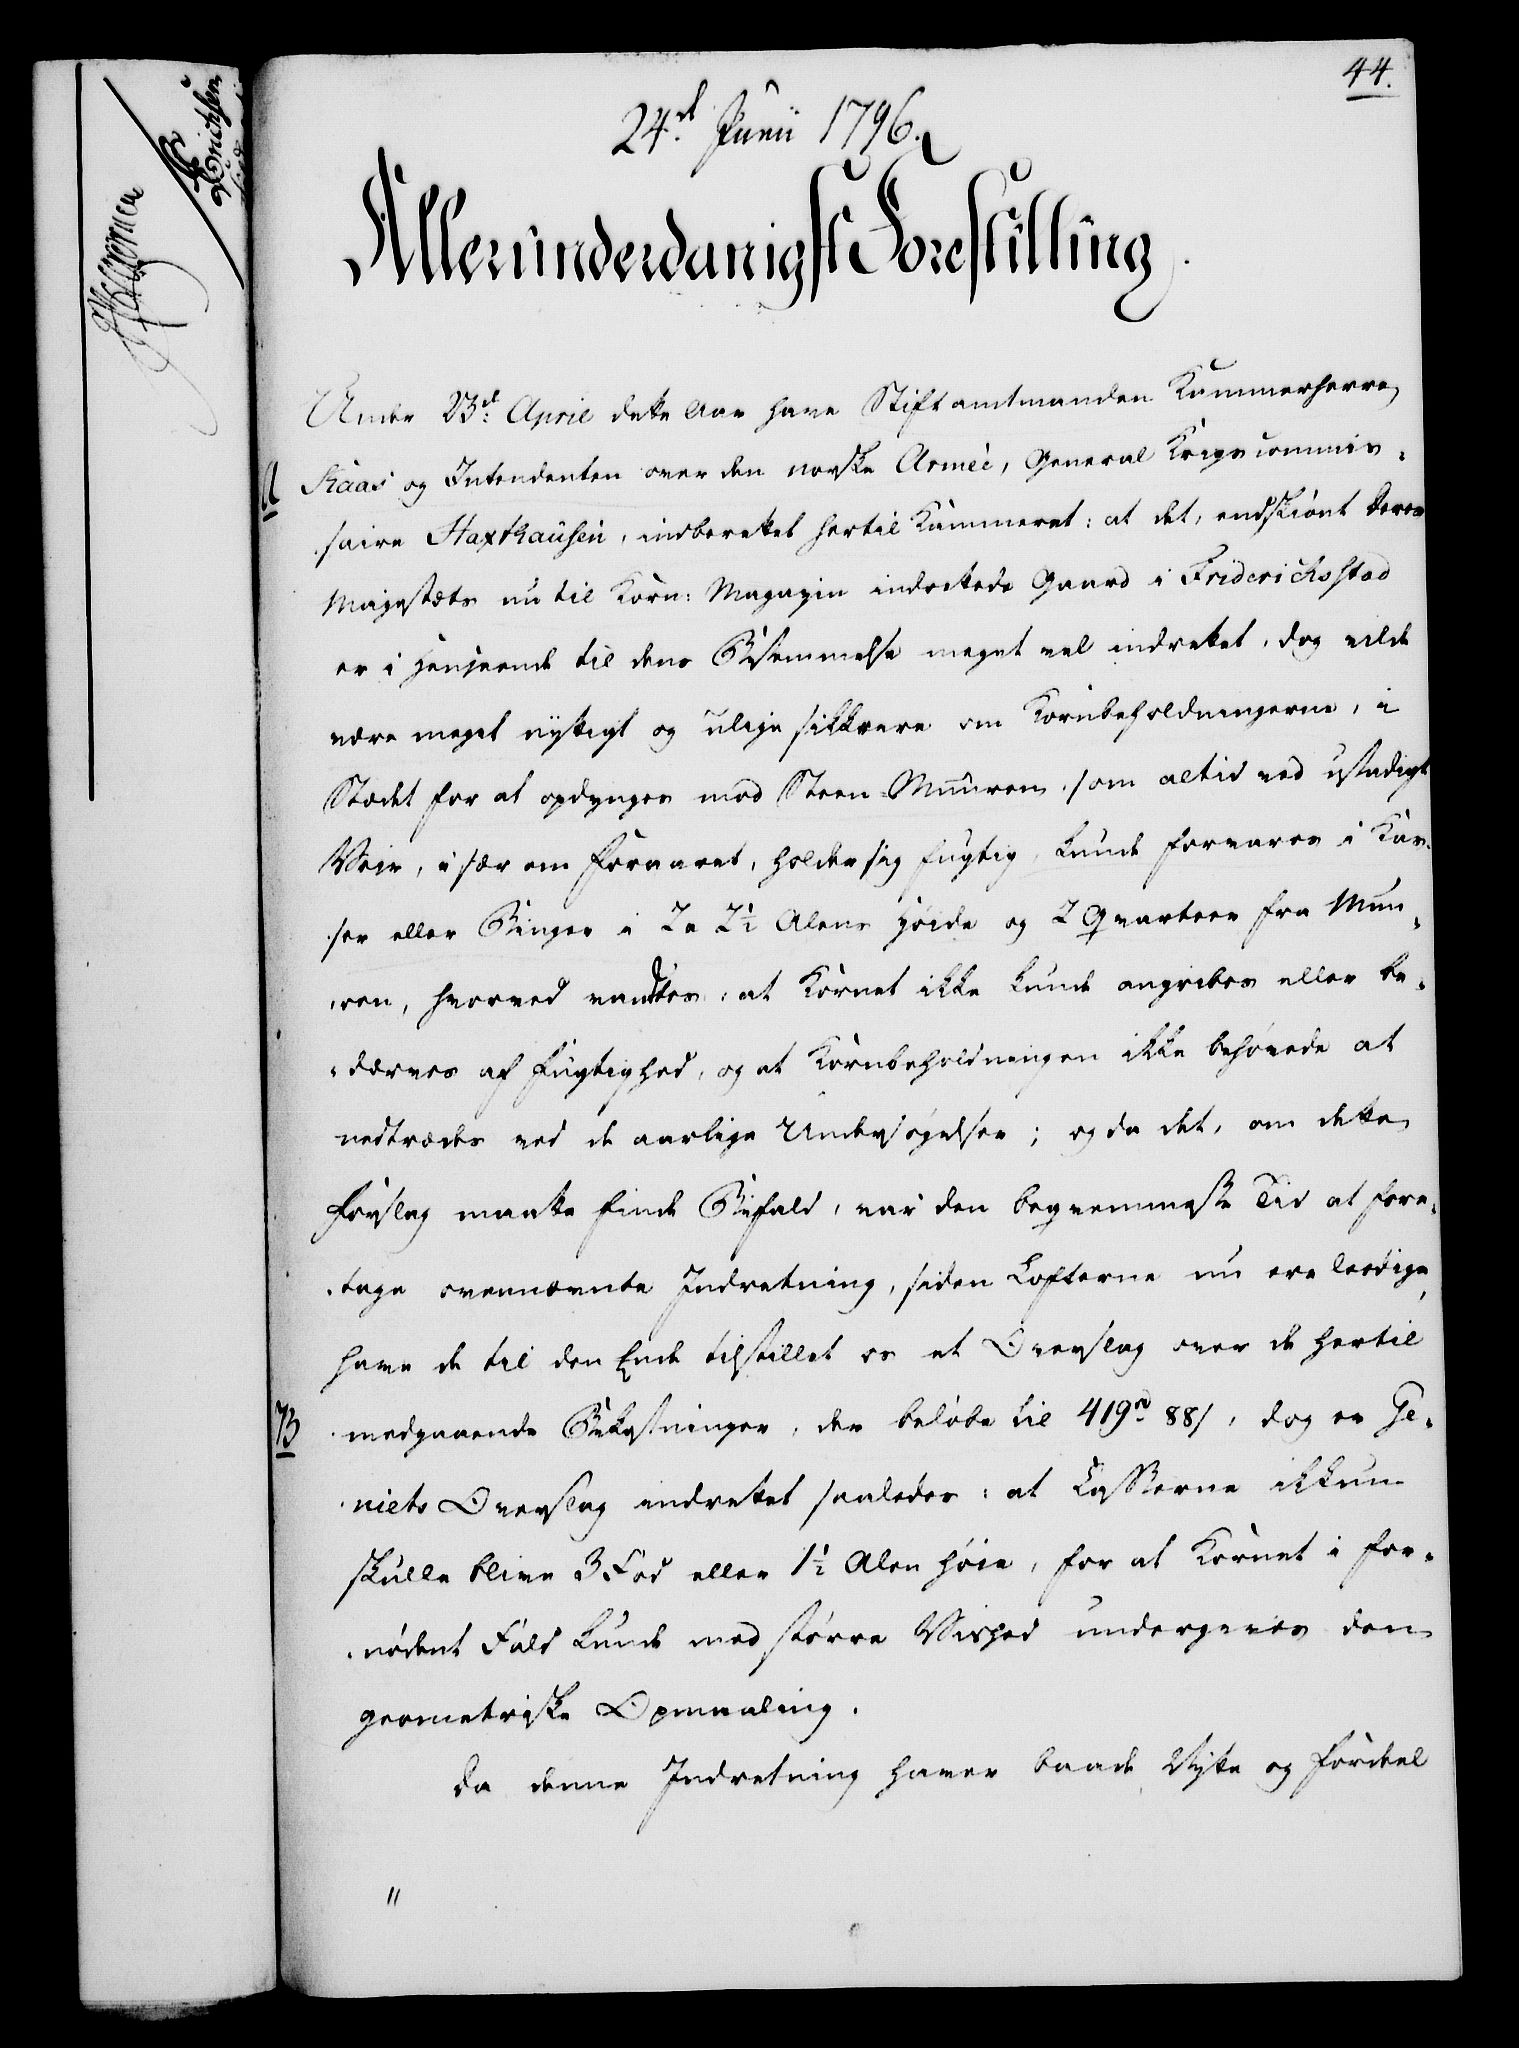 44.
24.de Junii 1796.
Allerunderdanigst Forestilling.
Under 23de April dette Aar have Stiftamtmanden Kammerherre
A
Kaas og Intendenten over den norske Armée, General Krigscommis-
saire Haxthausen, indberettet hertil Kammeret: at det, endskiønt Deres
Majestæts nu til Korn-Magazin indrettede Gaard i Friderichsstad
er i Henseende til dens Bestemmelse meget vel indrettet, dog vilde
være meget nyttigt og ulige sikkrere om Kornbeholdningerne, i
Stædet for at opdynges mod Steen-Muuren, som altid ved ustadigt
Veir, i sær om Foraaret, holder sig fugtig, kunde forvares i Kas-
ser eller Binger i 2 a 2½ Alens Høide og 2 Qvarteer fra Muu-
ren, hvorved vandtes: at Kornet ikke kunde angribes eller be-
dærves af Fugtighed, og at Kornbeholdningen ikke behøvede at
nedtrædes ved de aarlige Undersøgelser; og da det, om dette
Forslag maatte finde Bifald, var den beqvemmeste Tid at fore-
tage ovennævnte Indretning, siden Lofterne nu ere leedige,
have de til den Ende tilstillet os et Overslag over de hertil
B
medgaaende Bekostninger, der beløbe til 419rd 88s, dog er Ge-
niets Overslag indrettet saaledes: at Casserne ikkun
skulle blive 3 Fod eller 1½ Alen høie, for at Kornet i for-
nødent Fald kunde med større Vished undergives den
geometriske Opmaaling.
Da denne Indretning haver baade Nytte og Fordeel
"